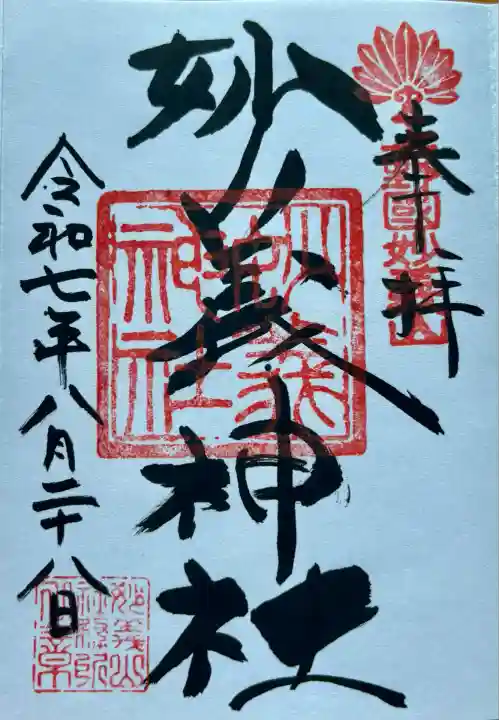 奉拝
上野國妙義山
妙義神社
妙義神社
令和七年八月二十八日